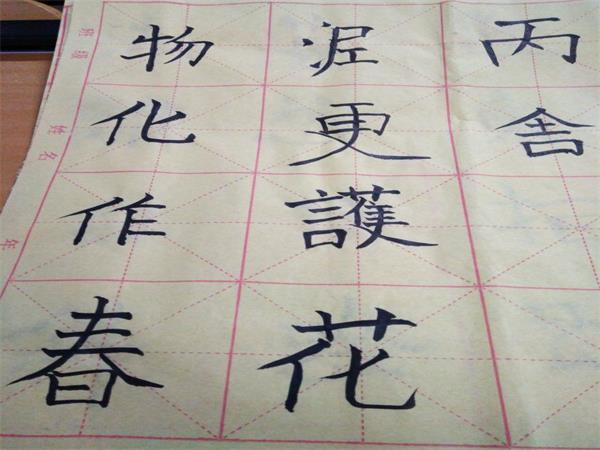 班级 姓名 年
物化作春
泥更護花
丙舍